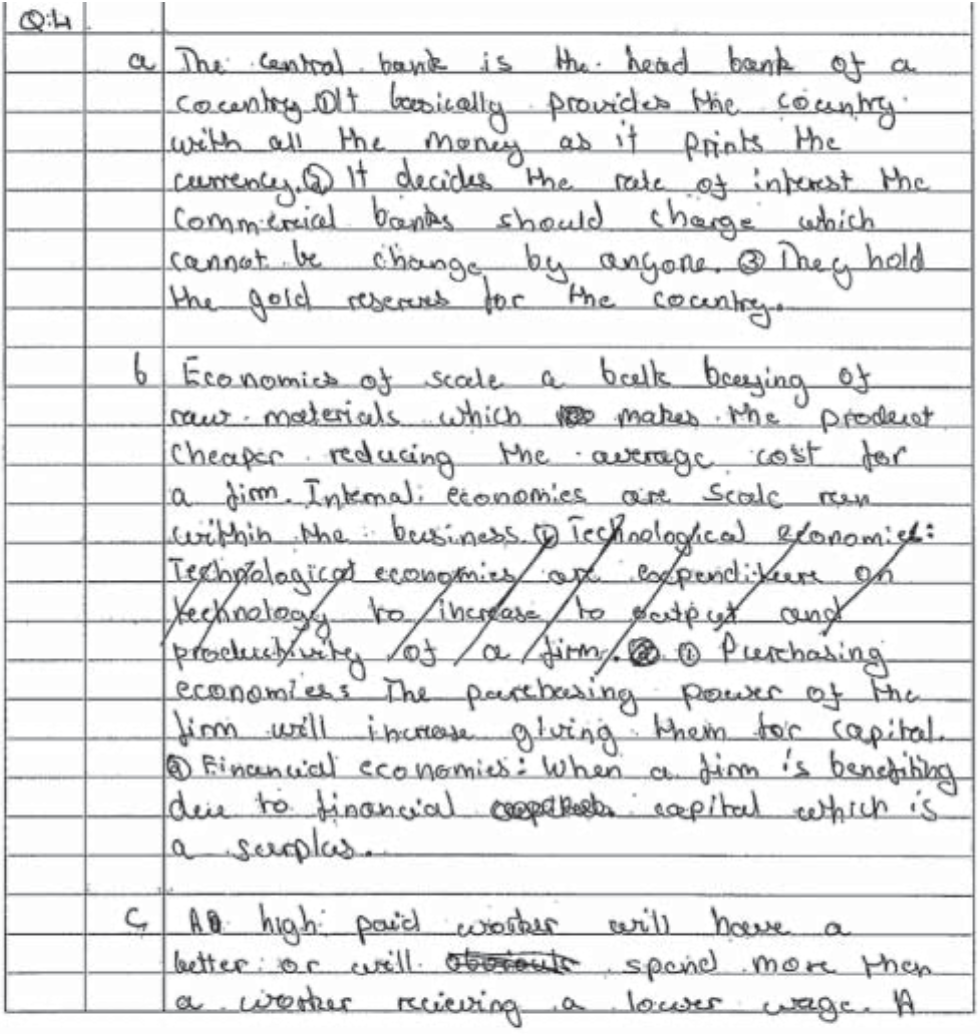 Q:4
a The central bank is the head bank of a
country ① It basically provides the country
with all the money as it prints the
currency. ② It decides the rate of interest the
commercial banks should charge which
cannot be change by anyone. ③ They hold
the gold reserves for the country.
b Economies of scale a bulk buying of
raw materials which makes the product
cheaper reducing the average cost for
a firm. Internal: economies are scale run
within the business. ① Technological economies:
Technological economies are expenditure on
technology to increase to output and
productivity of a firm. ① Purchasing
economies: The purchasing power of the
firm will increase giving them for capital.
② Financial economies: When a firm is benefiting
due to financial capital which is
a surplus.
c, A high paid worker will have a
better or will spend more then
a worker recieving a lower wage. A